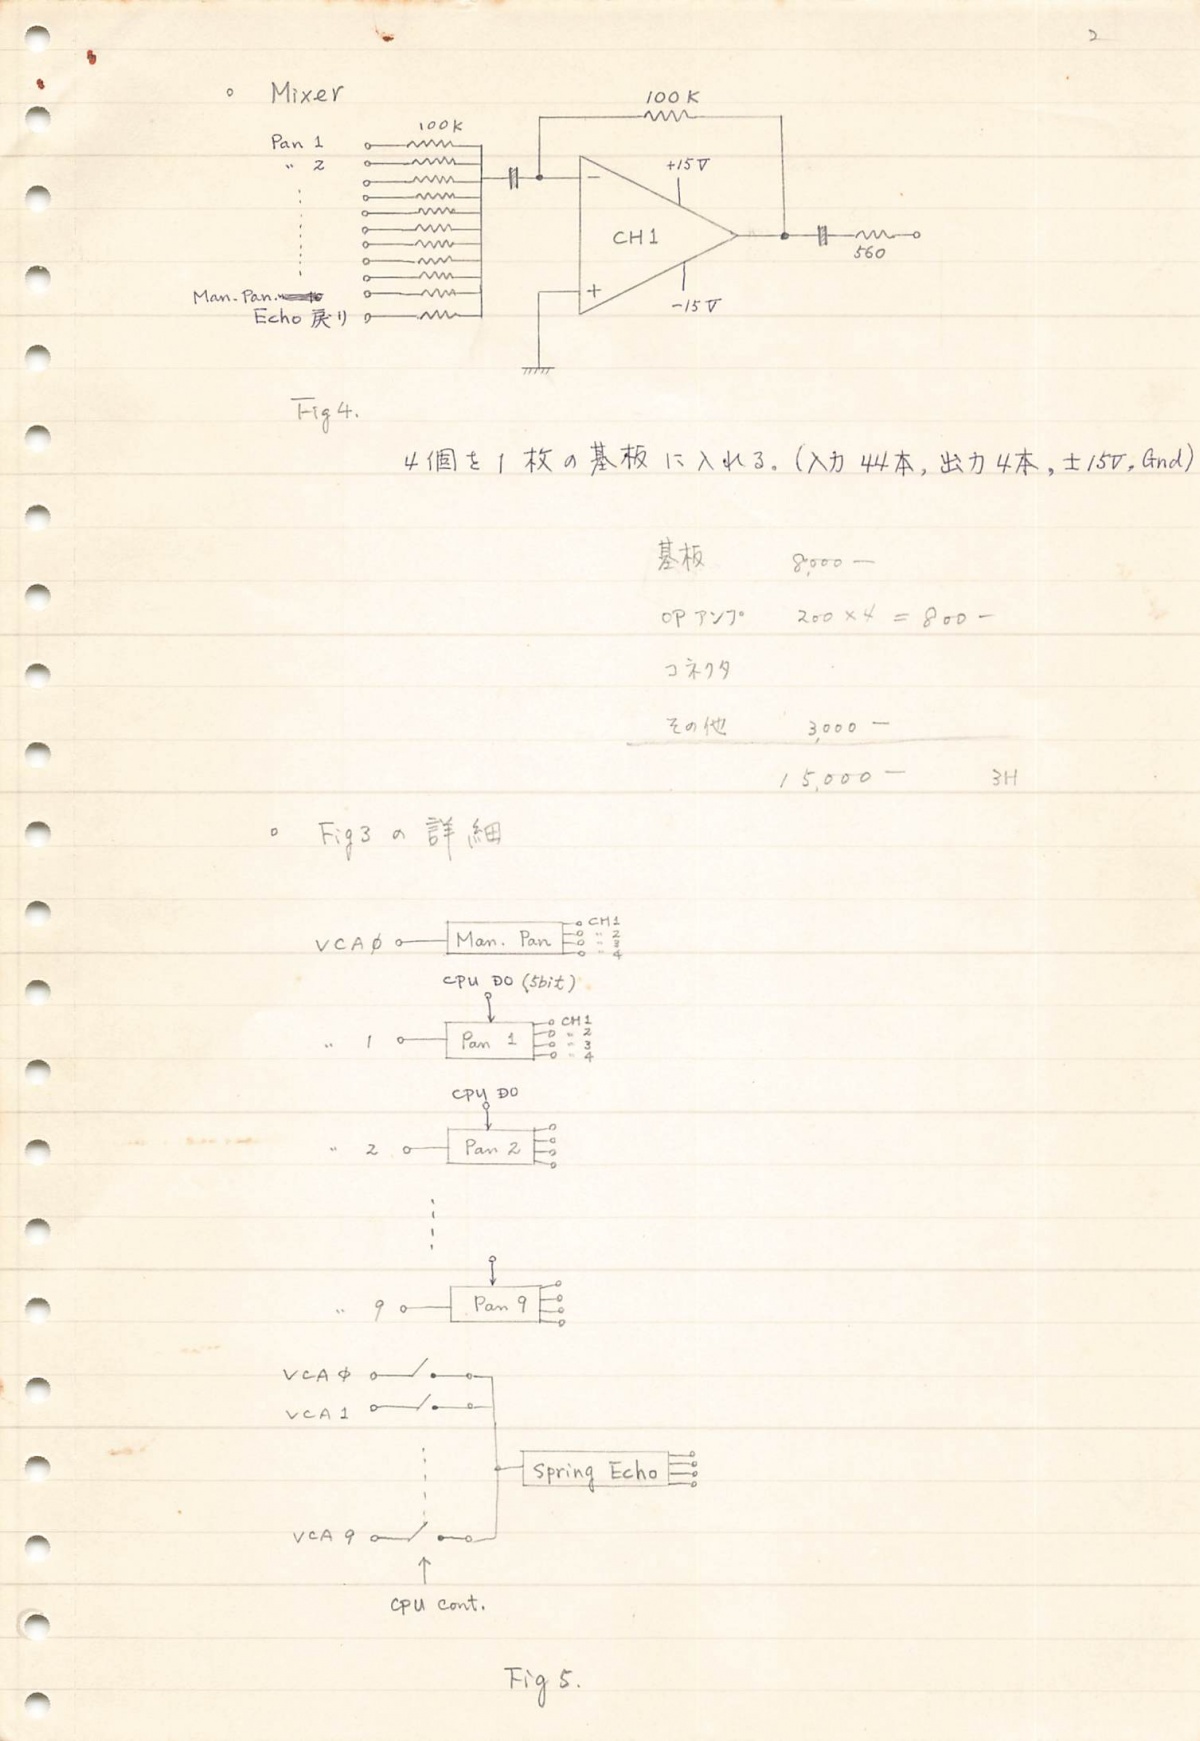 2
○ Mixer
100K
100K
Pan 1
〃 2
+15V
-
CH1
+
-15V
560
Man. Pan.
Echo 戻り
Fig 4.
4個を1枚の基板に入れる。(入力 44本, 出力 4本, ±15V, Gnd)
基板 8,000 —
OP アンプ 200 × 4 = 800 —
コネクタ
その他 3,000 —
15,000 — 3H
○ Fig 3 の 詳細
VCA φ Man. Pan CH1
〃 2
〃 3
〃 4
CPU DO (5bit)
〃 1 Pan 1 CH1
〃 2
〃 3
〃 4
CPU DO
〃 2 Pan 2
〃 9 Pan 9
VCA φ
VCA 1
Spring Echo
VCA 9
CPU cont.
Fig 5.